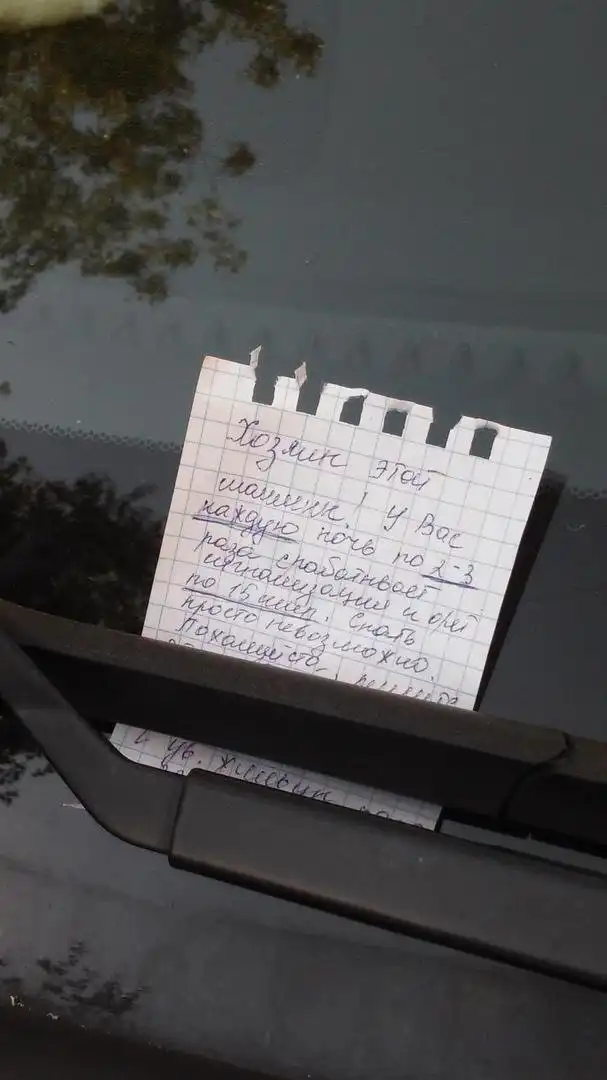 Хозяин этой
машины! У Вас
каждую ночь по 2-3
раза срабатывает
сигнализация и орет
по 15 мин. Спать
просто невозможно.
Пожалуйста, решите
ув. жильцы